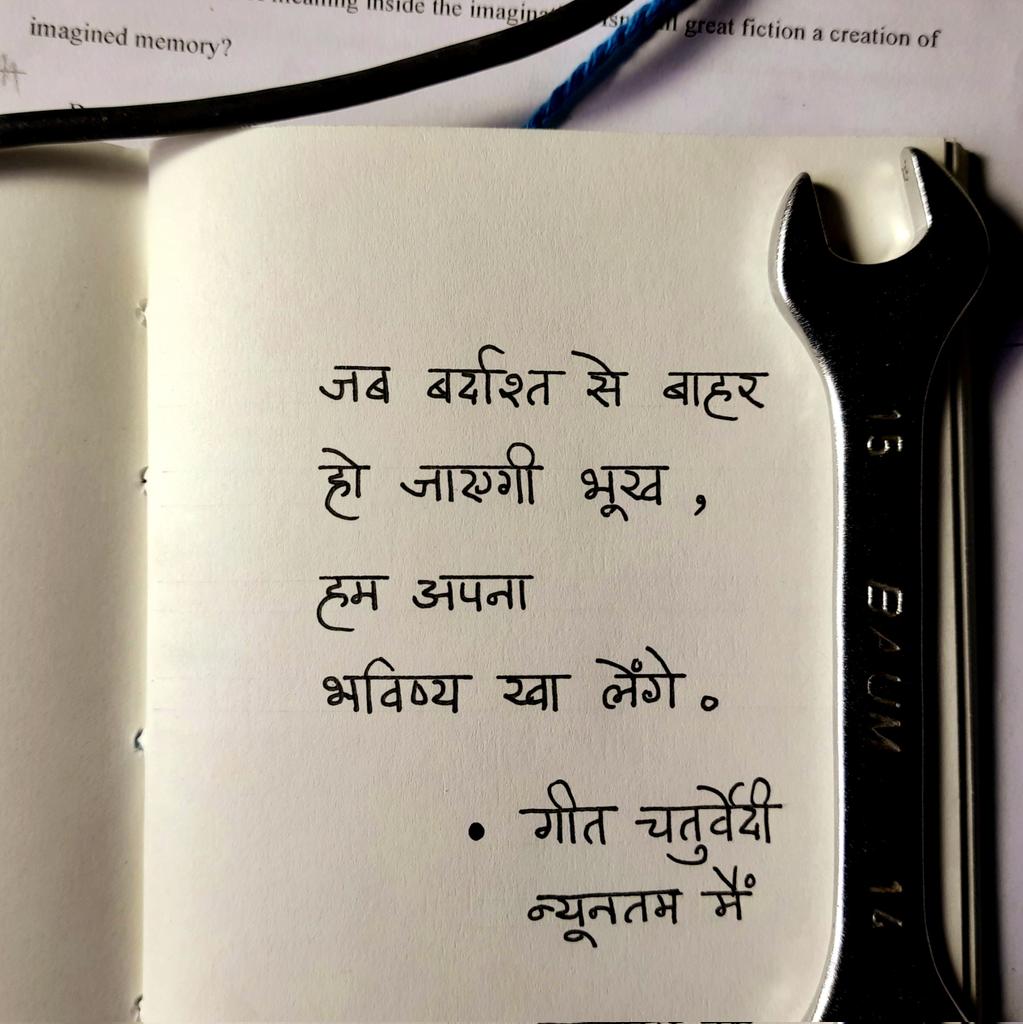 inside the
great fiction a creation of
imagined memory?
जब बर्दाश्त से बाहर
हो जाएगी भूख ,
हम अपना
भविष्य खा लेंगे .
• गीत चतुर्वेदी
न्यूनतम मैं
15
BAUM
14